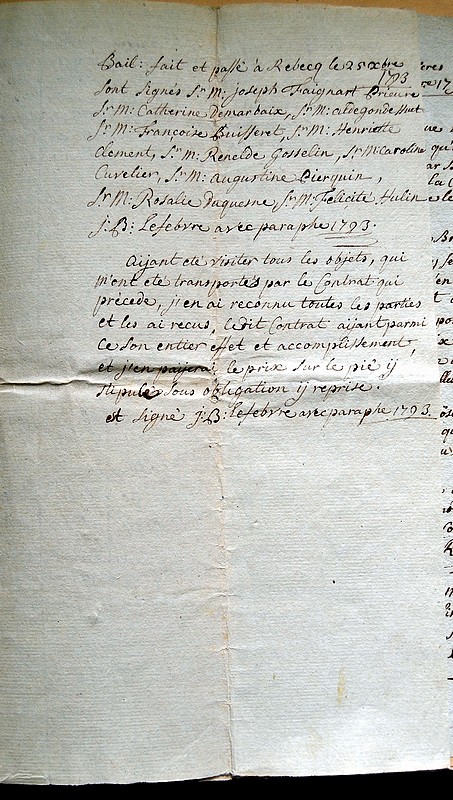 Bail: fait et passé à Rebecq le 25 xbre
1793
sont signés Sr M: joseph Faignart Prieure
Sr M: Catherine Demarbaix, Sr M: aldegonde Huet
Sr M: Françoise Buisseret, Sr M: Henriette
Clement, Sr M: Renelde Gosselin, Sr M: Caroline
Cuvelier, Sr M: augustine Pierquin,
Sr M: Rosalie Duquesne, Sr M: Felicité Hulin
j: B: Lefebvre avec paraphe 1793.
Aijant eté visiter tous les objets, qui
m'ont eté transportés par le Contrat qui
précede, j'en ai reconnu toutes les parties
et les ai recus, ledit Contrat aijant parmi
ce son entier effet et accomplissement
et j'en paijerai le prix sur le pié ij
stipulé sous obligation ij reprise.
et signé j: B: Lefebvre avec paraphe 1793.